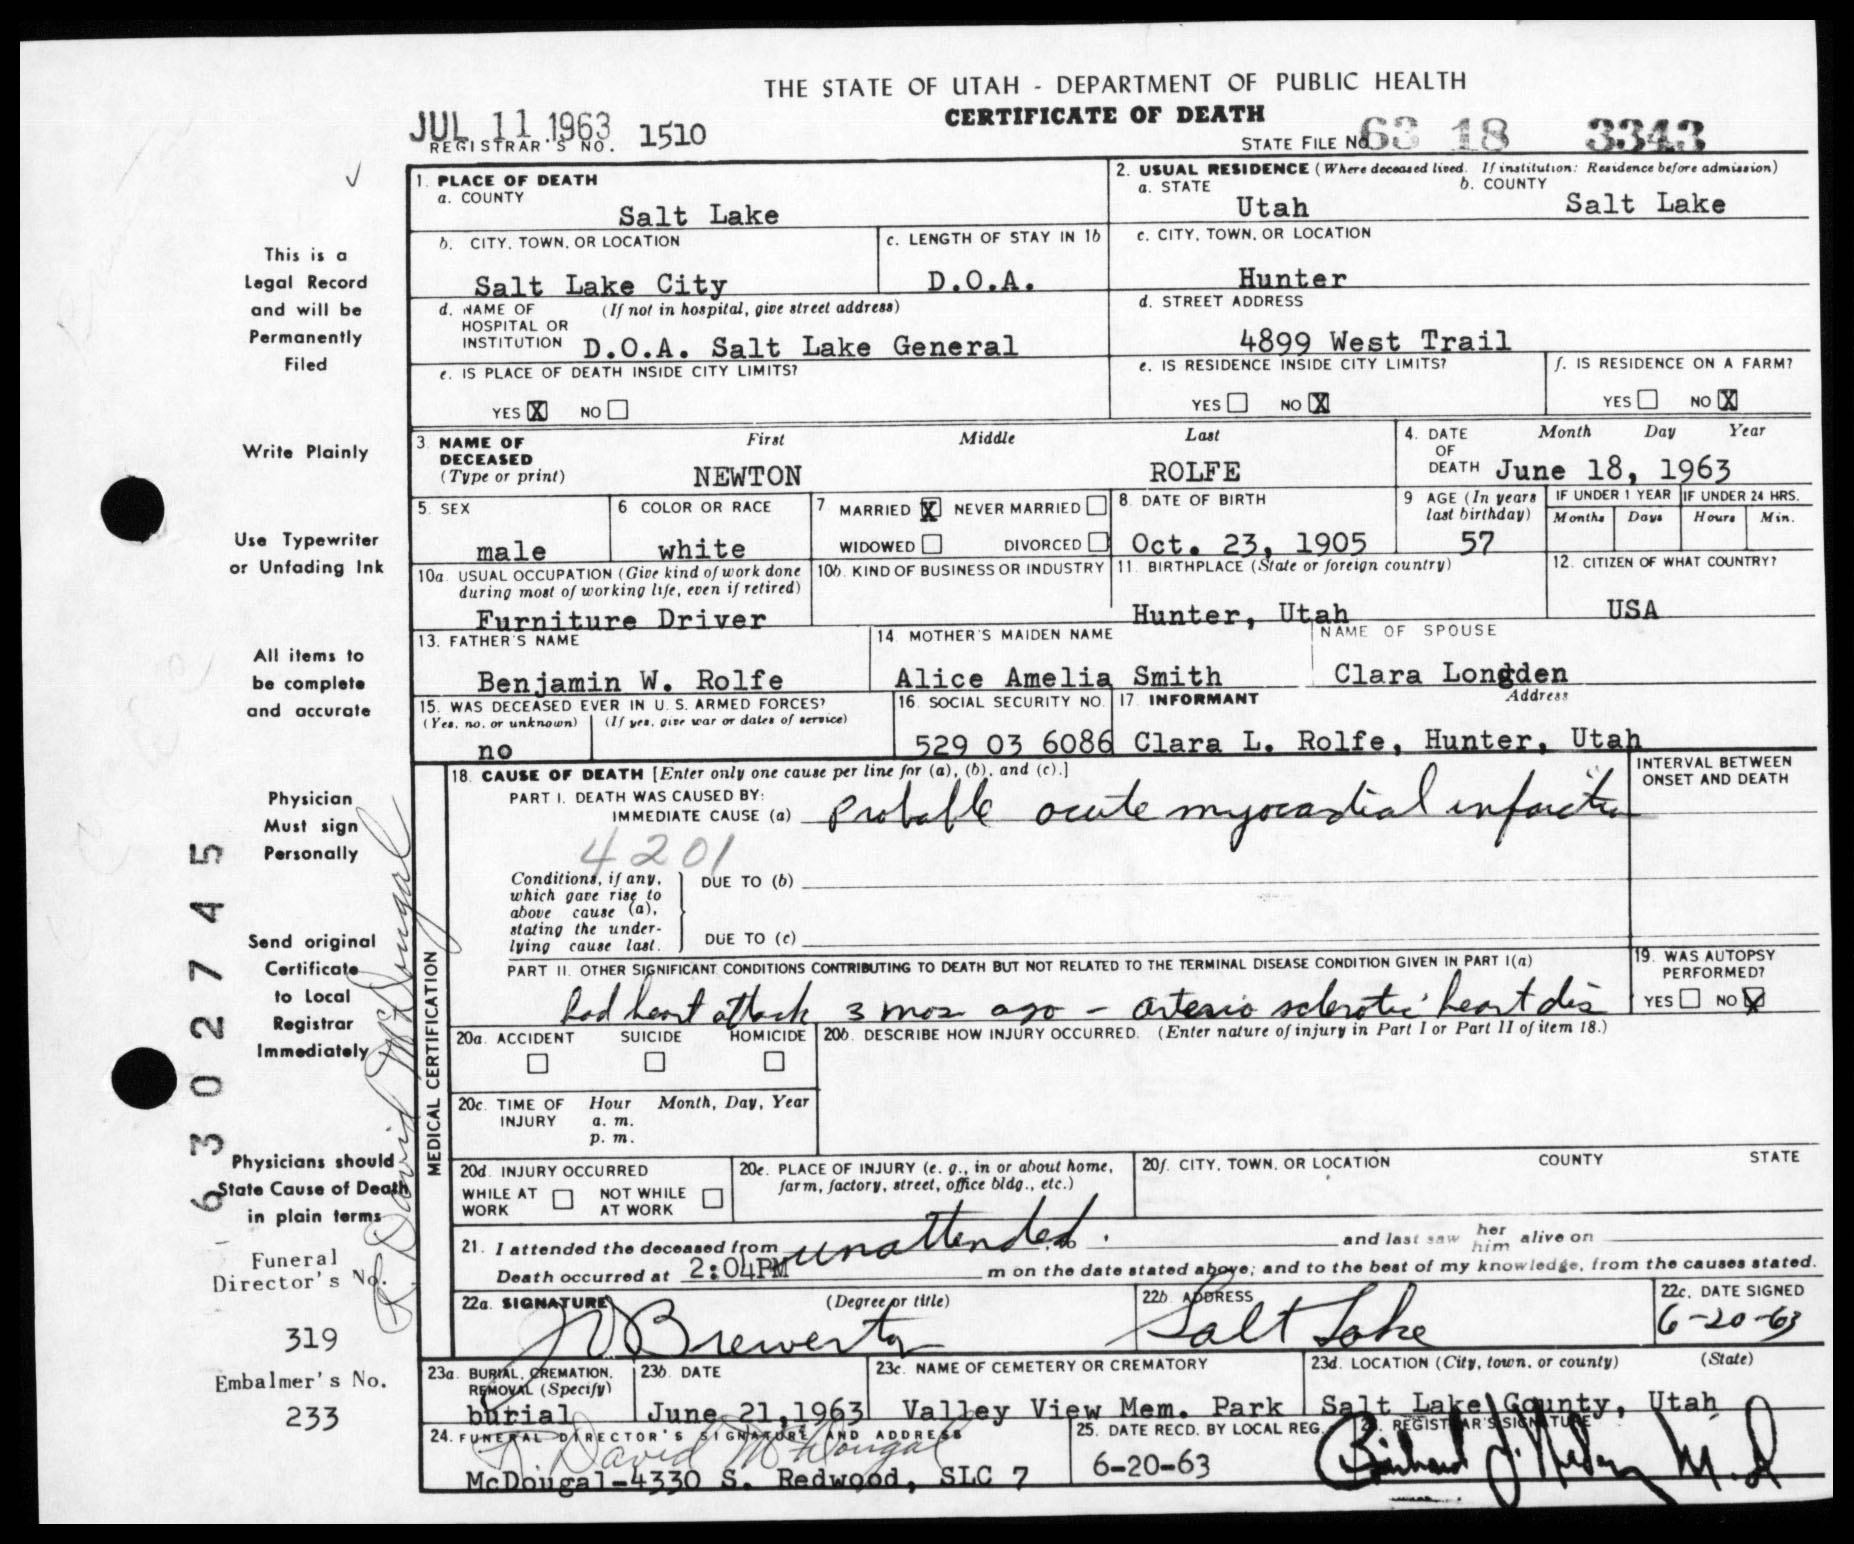 THE STATE OF UTAH - DEPARTMENT OF PUBLIC HEALTH
CERTIFICATE OF DEATH
JUL 11 1963
REGISTRAR'S NO. 1510
STATE FILE NO. 63 18 3343
This is a
Legal Record
and will be
Permanently
Filed
Write Plainly
Use Typewriter
or Unfading Ink
All items to
be complete
and accurate
Physician
Must sign
Personally
Send original
Certificate
to Local
Registrar
Immediately
Physicians should
State Cause of Death
in plain terms
Funeral
Director's No.
319
Embalmer's No.
233
6302745
R. David McDougal
1. PLACE OF DEATH
a. COUNTY
Salt Lake
2. USUAL RESIDENCE (Where deceased lived. If institution: Residence before admission)
a. STATE
Utah
b. COUNTY
Salt Lake
b. CITY, TOWN, OR LOCATION
Salt Lake City
c. LENGTH OF STAY IN 1b
D.O.A.
c. CITY, TOWN, OR LOCATION
Hunter
d. NAME OF HOSPITAL OR INSTITUTION (If not in hospital, give street address)
D.O.A. Salt Lake General
d. STREET ADDRESS
4899 West Trail
e. IS PLACE OF DEATH INSIDE CITY LIMITS?
YES X NO
e. IS RESIDENCE INSIDE CITY LIMITS?
YES NO X
f. IS RESIDENCE ON A FARM?
YES NO X
3. NAME OF DECEASED (Type or print)
First Middle Last
NEWTON ROLFE
4. DATE OF DEATH Month Day Year
June 18, 1963
5. SEX
male
6 COLOR OR RACE
white
7 MARRIED X NEVER MARRIED
WIDOWED DIVORCED
8. DATE OF BIRTH
Oct. 23, 1905
9 AGE (In years last birthday)
57
IF UNDER 1 YEAR
Months Days
IF UNDER 24 HRS.
Hours Min.
10a. USUAL OCCUPATION (Give kind of work done during most of working life, even if retired)
Furniture Driver
10b. KIND OF BUSINESS OR INDUSTRY
11. BIRTHPLACE (State or foreign country)
Hunter, Utah
12. CITIZEN OF WHAT COUNTRY?
USA
13. FATHER'S NAME
Benjamin W. Rolfe
14. MOTHER'S MAIDEN NAME
Alice Amelia Smith
NAME OF SPOUSE
Clara Longden
15. WAS DECEASED EVER IN U. S. ARMED FORCES?
(Yes, no, or unknown) (If yes, give war or dates of service)
no
16. SOCIAL SECURITY NO.
529 03 6086
17. INFORMANT Address
Clara L. Rolfe, Hunter, Utah
MEDICAL CERTIFICATION
18. CAUSE OF DEATH [Enter only one cause per line for (a), (b), and (c).]
INTERVAL BETWEEN ONSET AND DEATH
PART I. DEATH WAS CAUSED BY:
IMMEDIATE CAUSE (a) probable acute myocardial infarction
4201
Conditions, if any, which gave rise to above cause (a), stating the underlying cause last.
DUE TO (b)
DUE TO (c)
PART II. OTHER SIGNIFICANT CONDITIONS CONTRIBUTING TO DEATH BUT NOT RELATED TO THE TERMINAL DISEASE CONDITION GIVEN IN PART I(a)
had heart attack 3 mos ago - arterio sclerotic heart dis
19. WAS AUTOPSY PERFORMED?
YES NO X
20a. ACCIDENT SUICIDE HOMICIDE
20b. DESCRIBE HOW INJURY OCCURRED. (Enter nature of injury in Part I or Part II of item 18.)
20c. TIME OF INJURY Hour Month, Day, Year
a. m.
p. m.
20d. INJURY OCCURRED
WHILE AT WORK NOT WHILE AT WORK
20e. PLACE OF INJURY (e. g., in or about home, farm, factory, street, office bldg., etc.)
20f. CITY, TOWN, OR LOCATION COUNTY STATE
21. I attended the deceased from unattended. to and last saw her him alive on
Death occurred at 2:04PM m on the date stated above; and to the best of my knowledge, from the causes stated.
22a. SIGNATURE (Degree or title)
Brewerton
22b. ADDRESS
Salt Lake
22c. DATE SIGNED
6-20-63
23a. BURIAL, CREMATION, REMOVAL (Specify)
burial
23b. DATE
June 21, 1963
23c. NAME OF CEMETERY OR CREMATORY
Valley View Mem. Park
23d. LOCATION (City, town, or county) (State)
Salt Lake County, Utah
24. FUNERAL DIRECTOR'S SIGNATURE AND ADDRESS
R. David McDougal
McDougal-4330 S. Redwood, SLC 7
25. DATE RECD. BY LOCAL REG.
6-20-63
REGISTRAR'S SIGNATURE
M.D